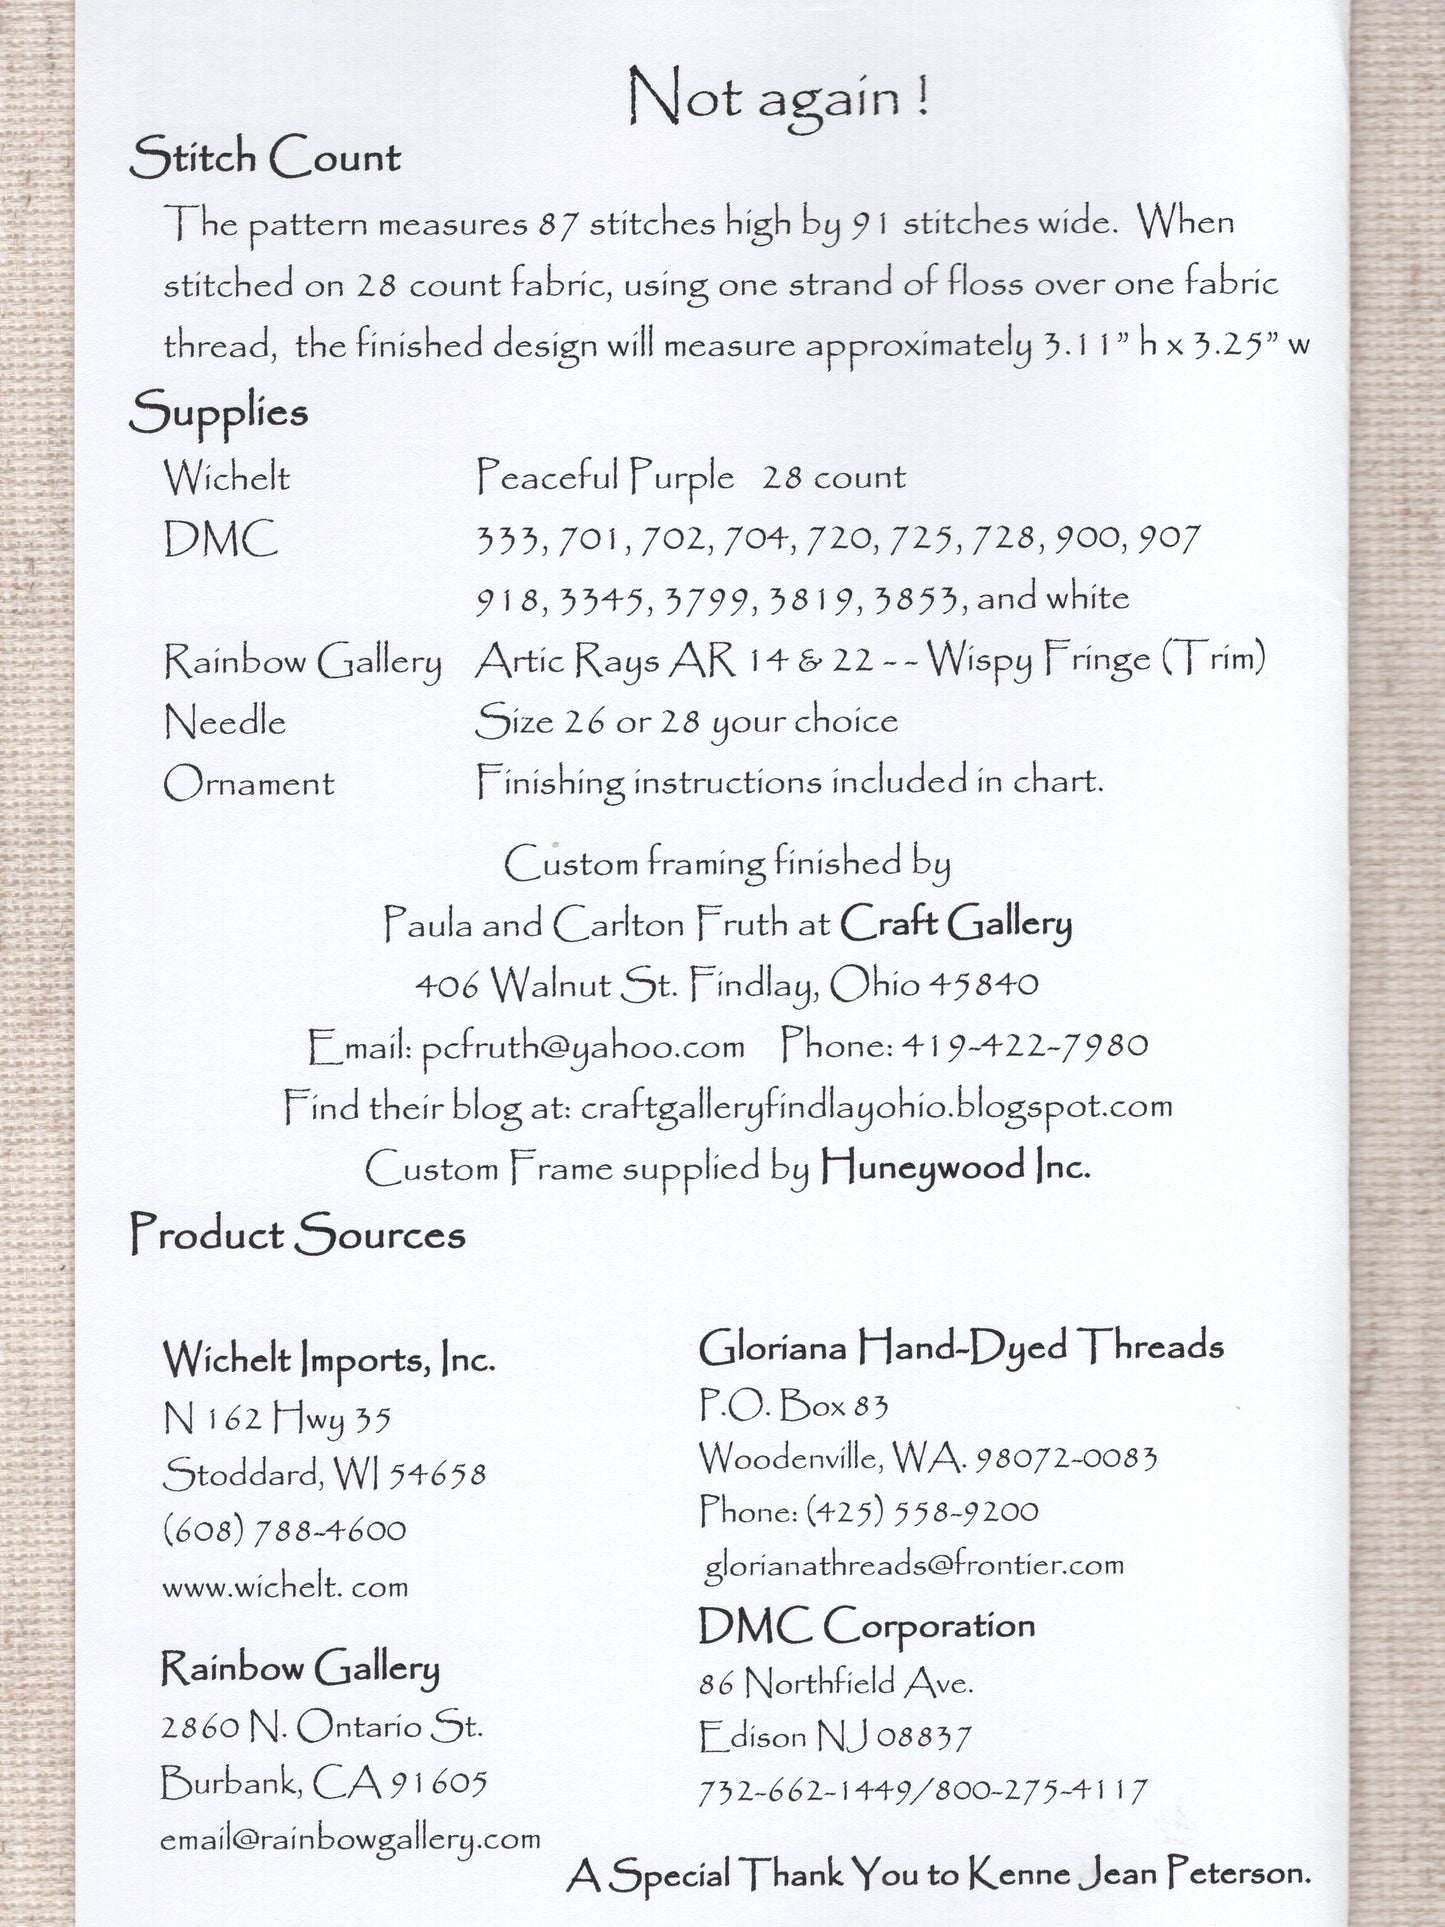 Not again !
Stitch Count
The pattern measures 87 stitches high by 91 stitches wide.  When
stitched on 28 count fabric, using one strand of floss over one fabric
thread,  the finished design will measure approximately 3.11” h x 3.25” w
Supplies
Wichelt Peaceful Purple 28 count
DMC 333, 701, 702, 704, 720, 725, 728, 900, 907
918, 3345, 3799, 3819, 3853, and white
Rainbow Gallery Artic Rays AR 14 & 22 -- Wispy Fringe (Trim)
Needle Size 26 or 28 your choice
Ornament Finishing instructions included in chart.
Custom framing finished by
Paula and Carlton Fruth at Craft Gallery
406 Walnut St. Findlay, Ohio 45840
Email: pcfruth@yahoo.com Phone: 419-422-7980
Find their blog at: craftgalleryfindlayohio.blogspot.com
Custom Frame supplied by Huneywood Inc.
Product Sources
Wichelt Imports, Inc.
N 162 Hwy 35
Stoddard, WI 54658
(608) 788-4600
www.wichelt. com
Rainbow Gallery
2860 N. Ontario St.
Burbank, CA 91605
email@rainbowgallery.com
Gloriana Hand-Dyed Threads
P.O. Box 83
Woodenville, WA. 98072-0083
Phone: (425) 558-9200
glorianathreads@frontier.com
DMC Corporation
86 Northfield Ave.
Edison NJ 08837
732-662-1449/800-275-4117
A Special Thank You to Kenne Jean Peterson.